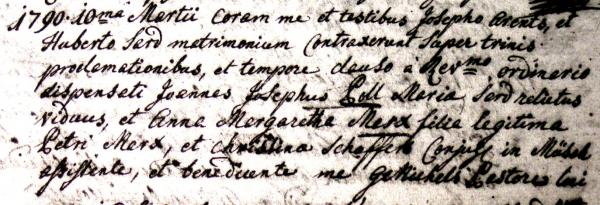 1790. 10ma Martii Coram me et testibus Josepho Arents, et
Huberto Sard matrimonium Contraxerunt super trinis
proclamationibus, et tempore clauso a Revmo ordinario
dispensati Joannes Josephus Poll Maria Sard relictus
viduus, et Anna Margaretha Marx filia legitima
Petri Marx, et Christina Scheffers Conjug in
assistente, et benedicente me Pastore loci